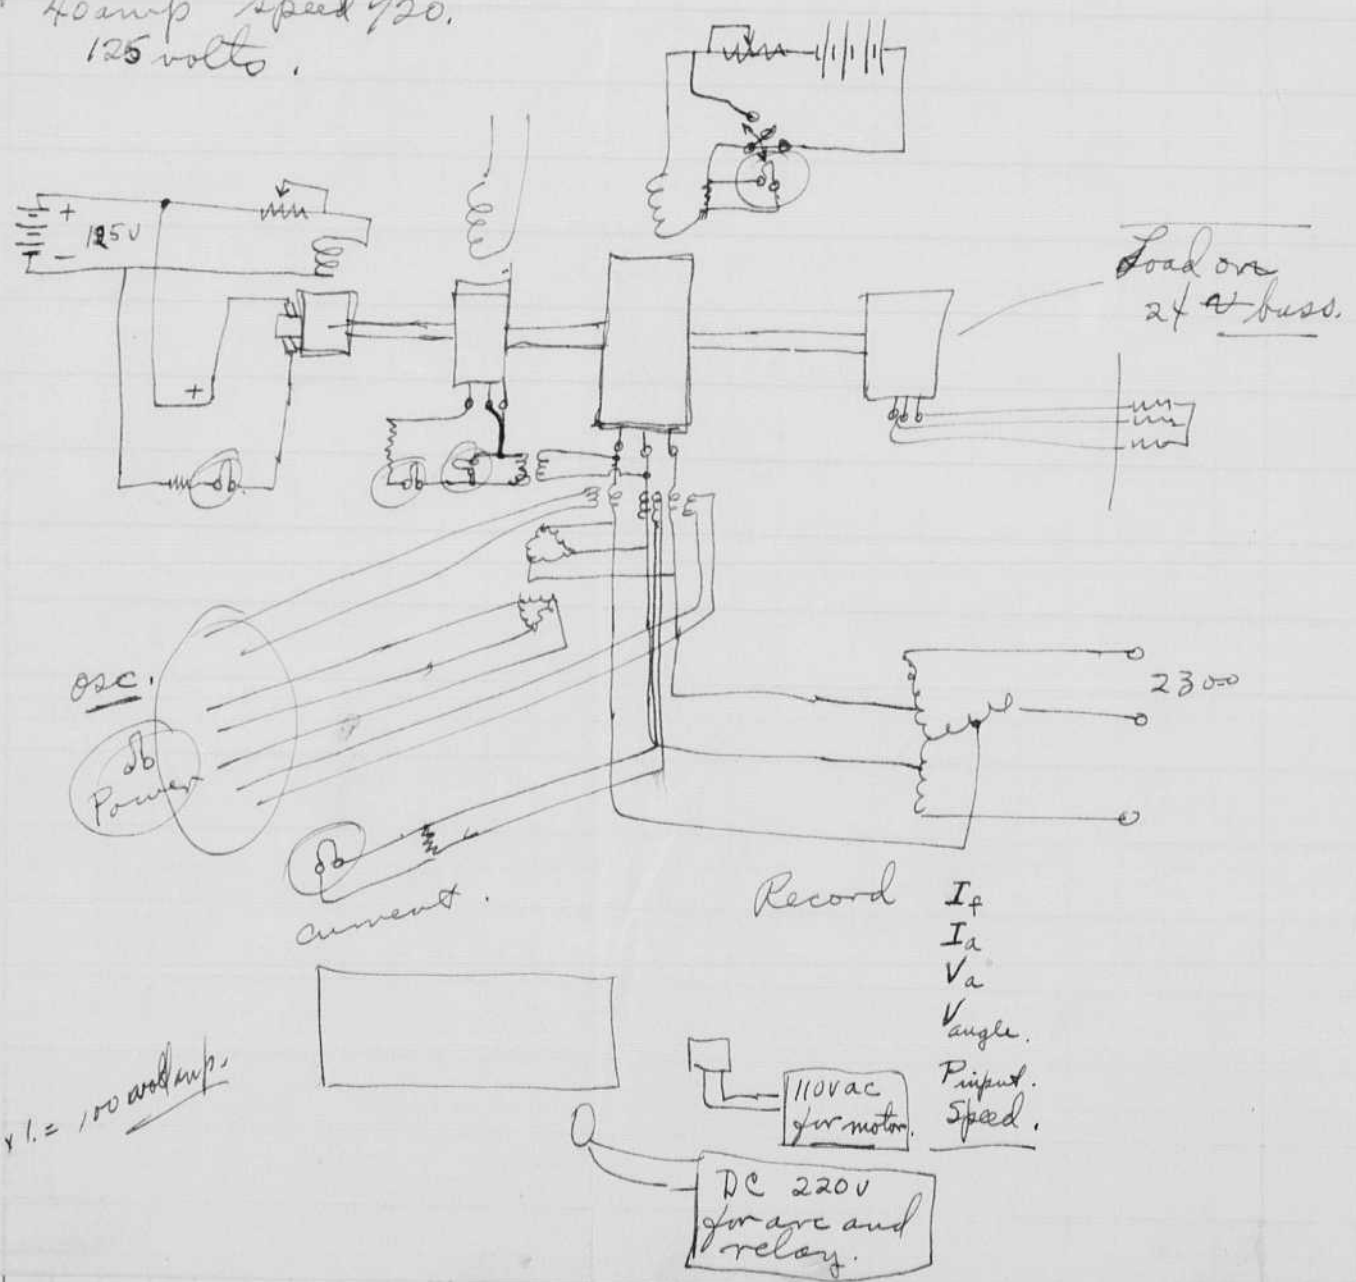 40 amp speed 720.
125 volts.
+
125V
-
+
Load on
24 V buss.
2300
osc.
Power
current.
Record
I f
I a
V a
V angle.
P input.
Speed.
110 V ac
for motor.
DC 220 V
for arc and
relay.